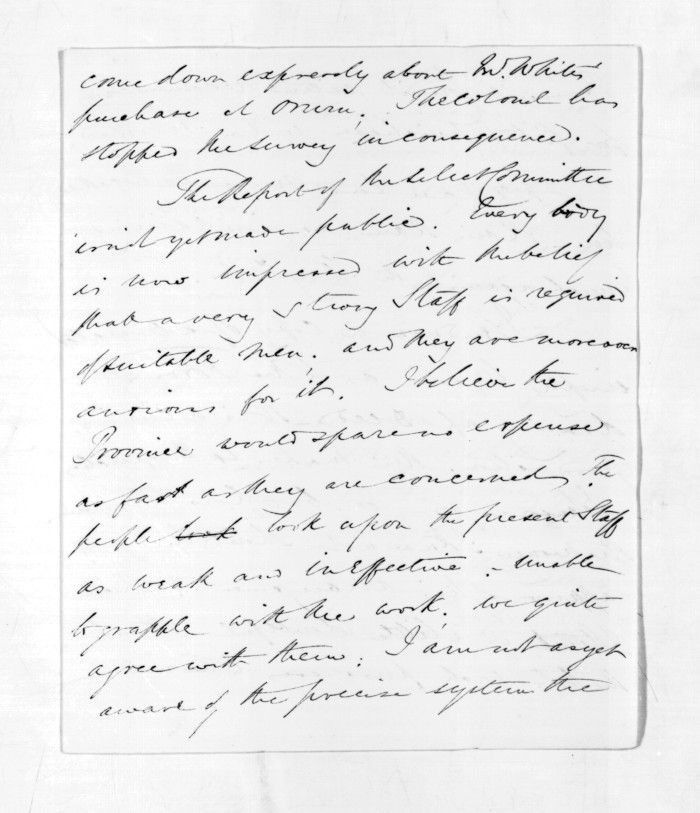 come down expressly about Mr. Whites'
purchase at Oruru. The Colonel has
stopped the survey in consequence.
The Report of the Select Committee
is not yet made public. Every body
is now impressed with the belief
that a very strong Staff is required
of suitable men, and they are moreover
anxious for it. I believe the
Province would spare no expense
as far as they are concerned. The
people look look upon the present Staff
as weak and ineffective - unable
to grapple with the work. We quite
agree with them. I am not as yet
aware of the precise system the